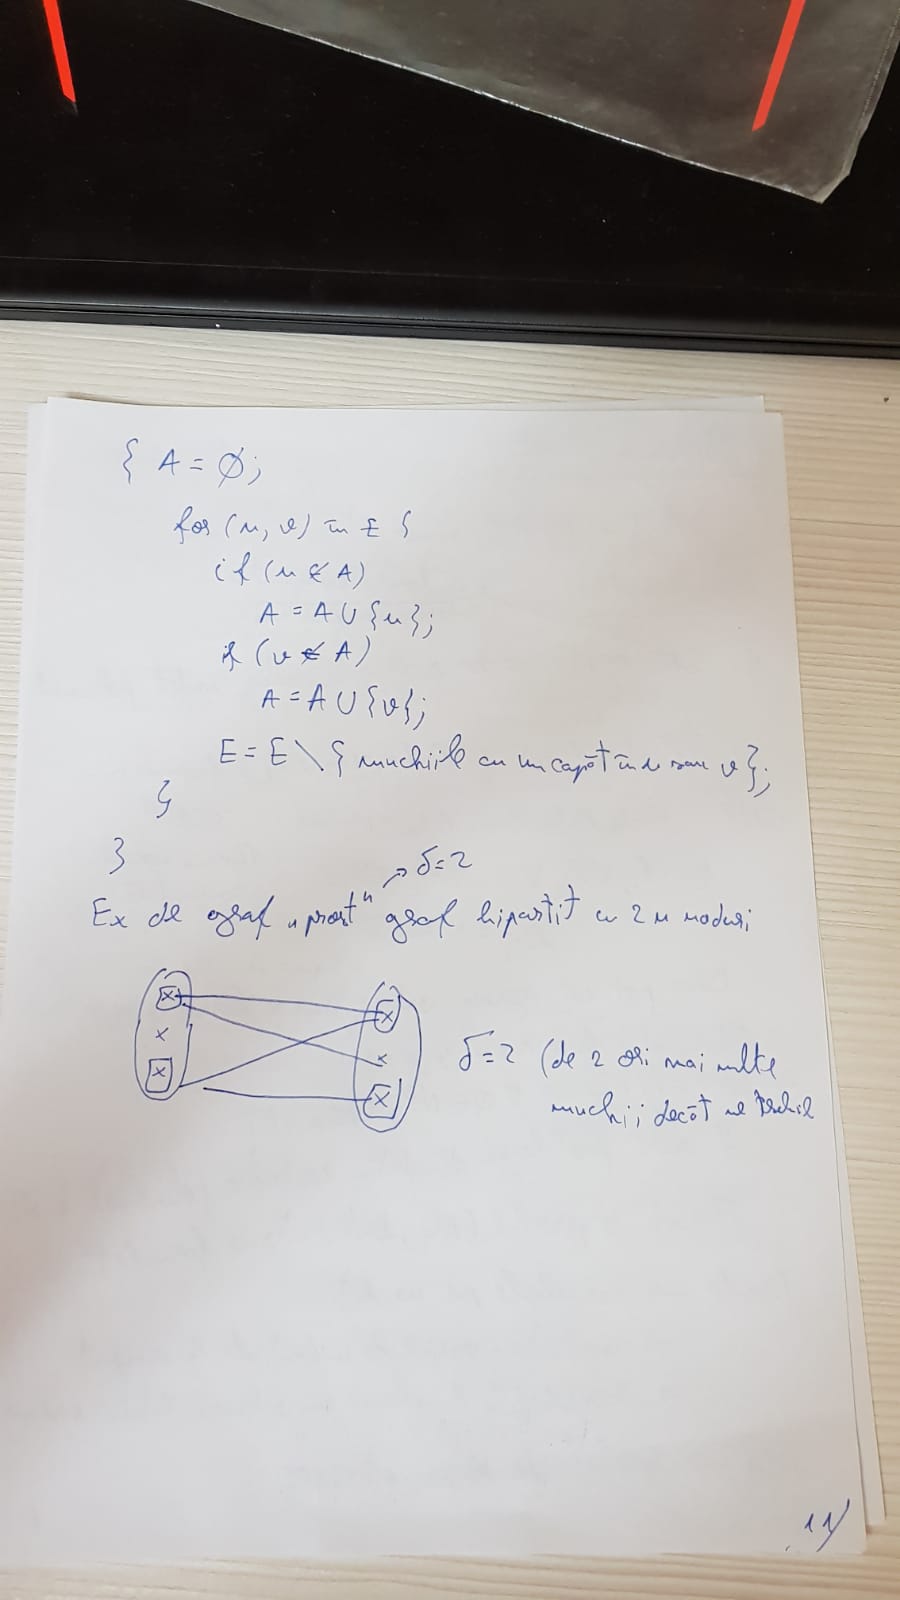 { A = ∅;
for (u, v) în E {
if (u ∉ A)
A = A ∪ {u};
if (v ∉ A)
A = A ∪ {v};
E = E \ { muchiile cu un capăt în u sau v };
}
}
→ δ=2
Ex de graf „prost" graf bipartit cu 2 n noduri
x x
x x
x x
δ=2 (de 2 ori mai multe
muchii decât ne
11